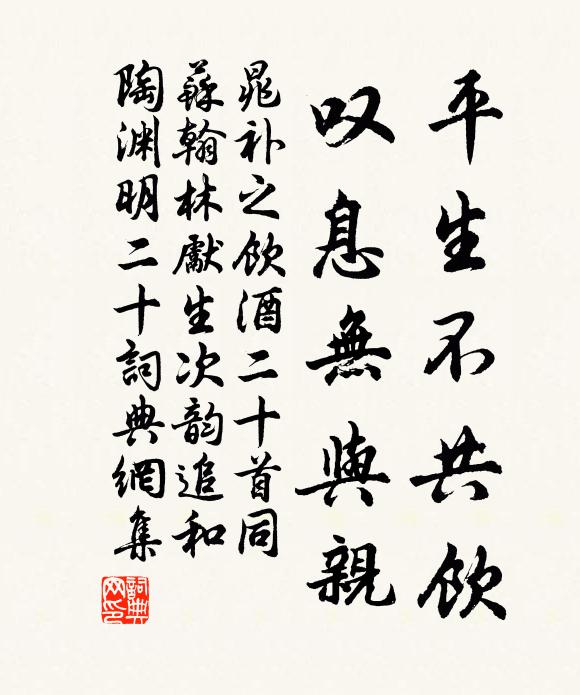 平生不共飲
叹息無與親
晁补之飲酒二十首同
蘇翰林獻生次韵追和
陶渊明二十詞典網集
詞典网印